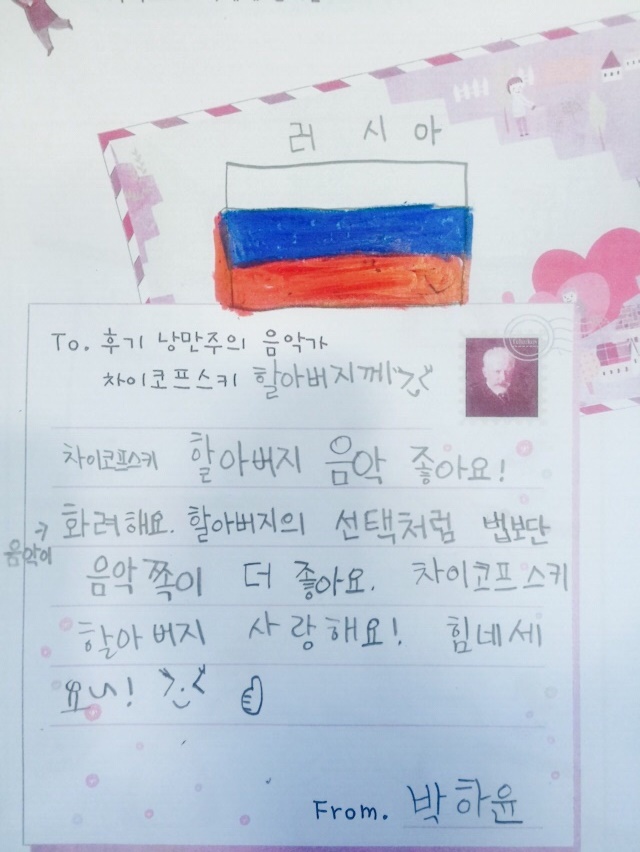 러시아
To. 후기 낭만주의 음악가
차이코프스키 할아버지께
차이코프스키 할아버지 음악 좋아요!
음악이
화려해요. 할아버지의 선택처럼 법보단
음악쪽이 더 좋아요. 차이코프스키
할아버지 사랑해요! 힘네세
요!
From. 박하윤